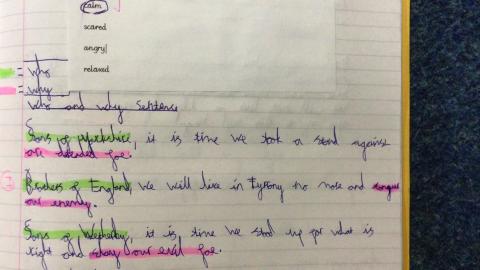 calm
scared
angry
relaxed
= Who
= why
Who and why Sentences
Sons of Yorkshire, it is time we took a stand against
our dreaded foe.
Brothers of England, we will live in tyrony no more and
our enemy.
Sons of Wetherby, it is time we stood up for what is
right and our evil foe.